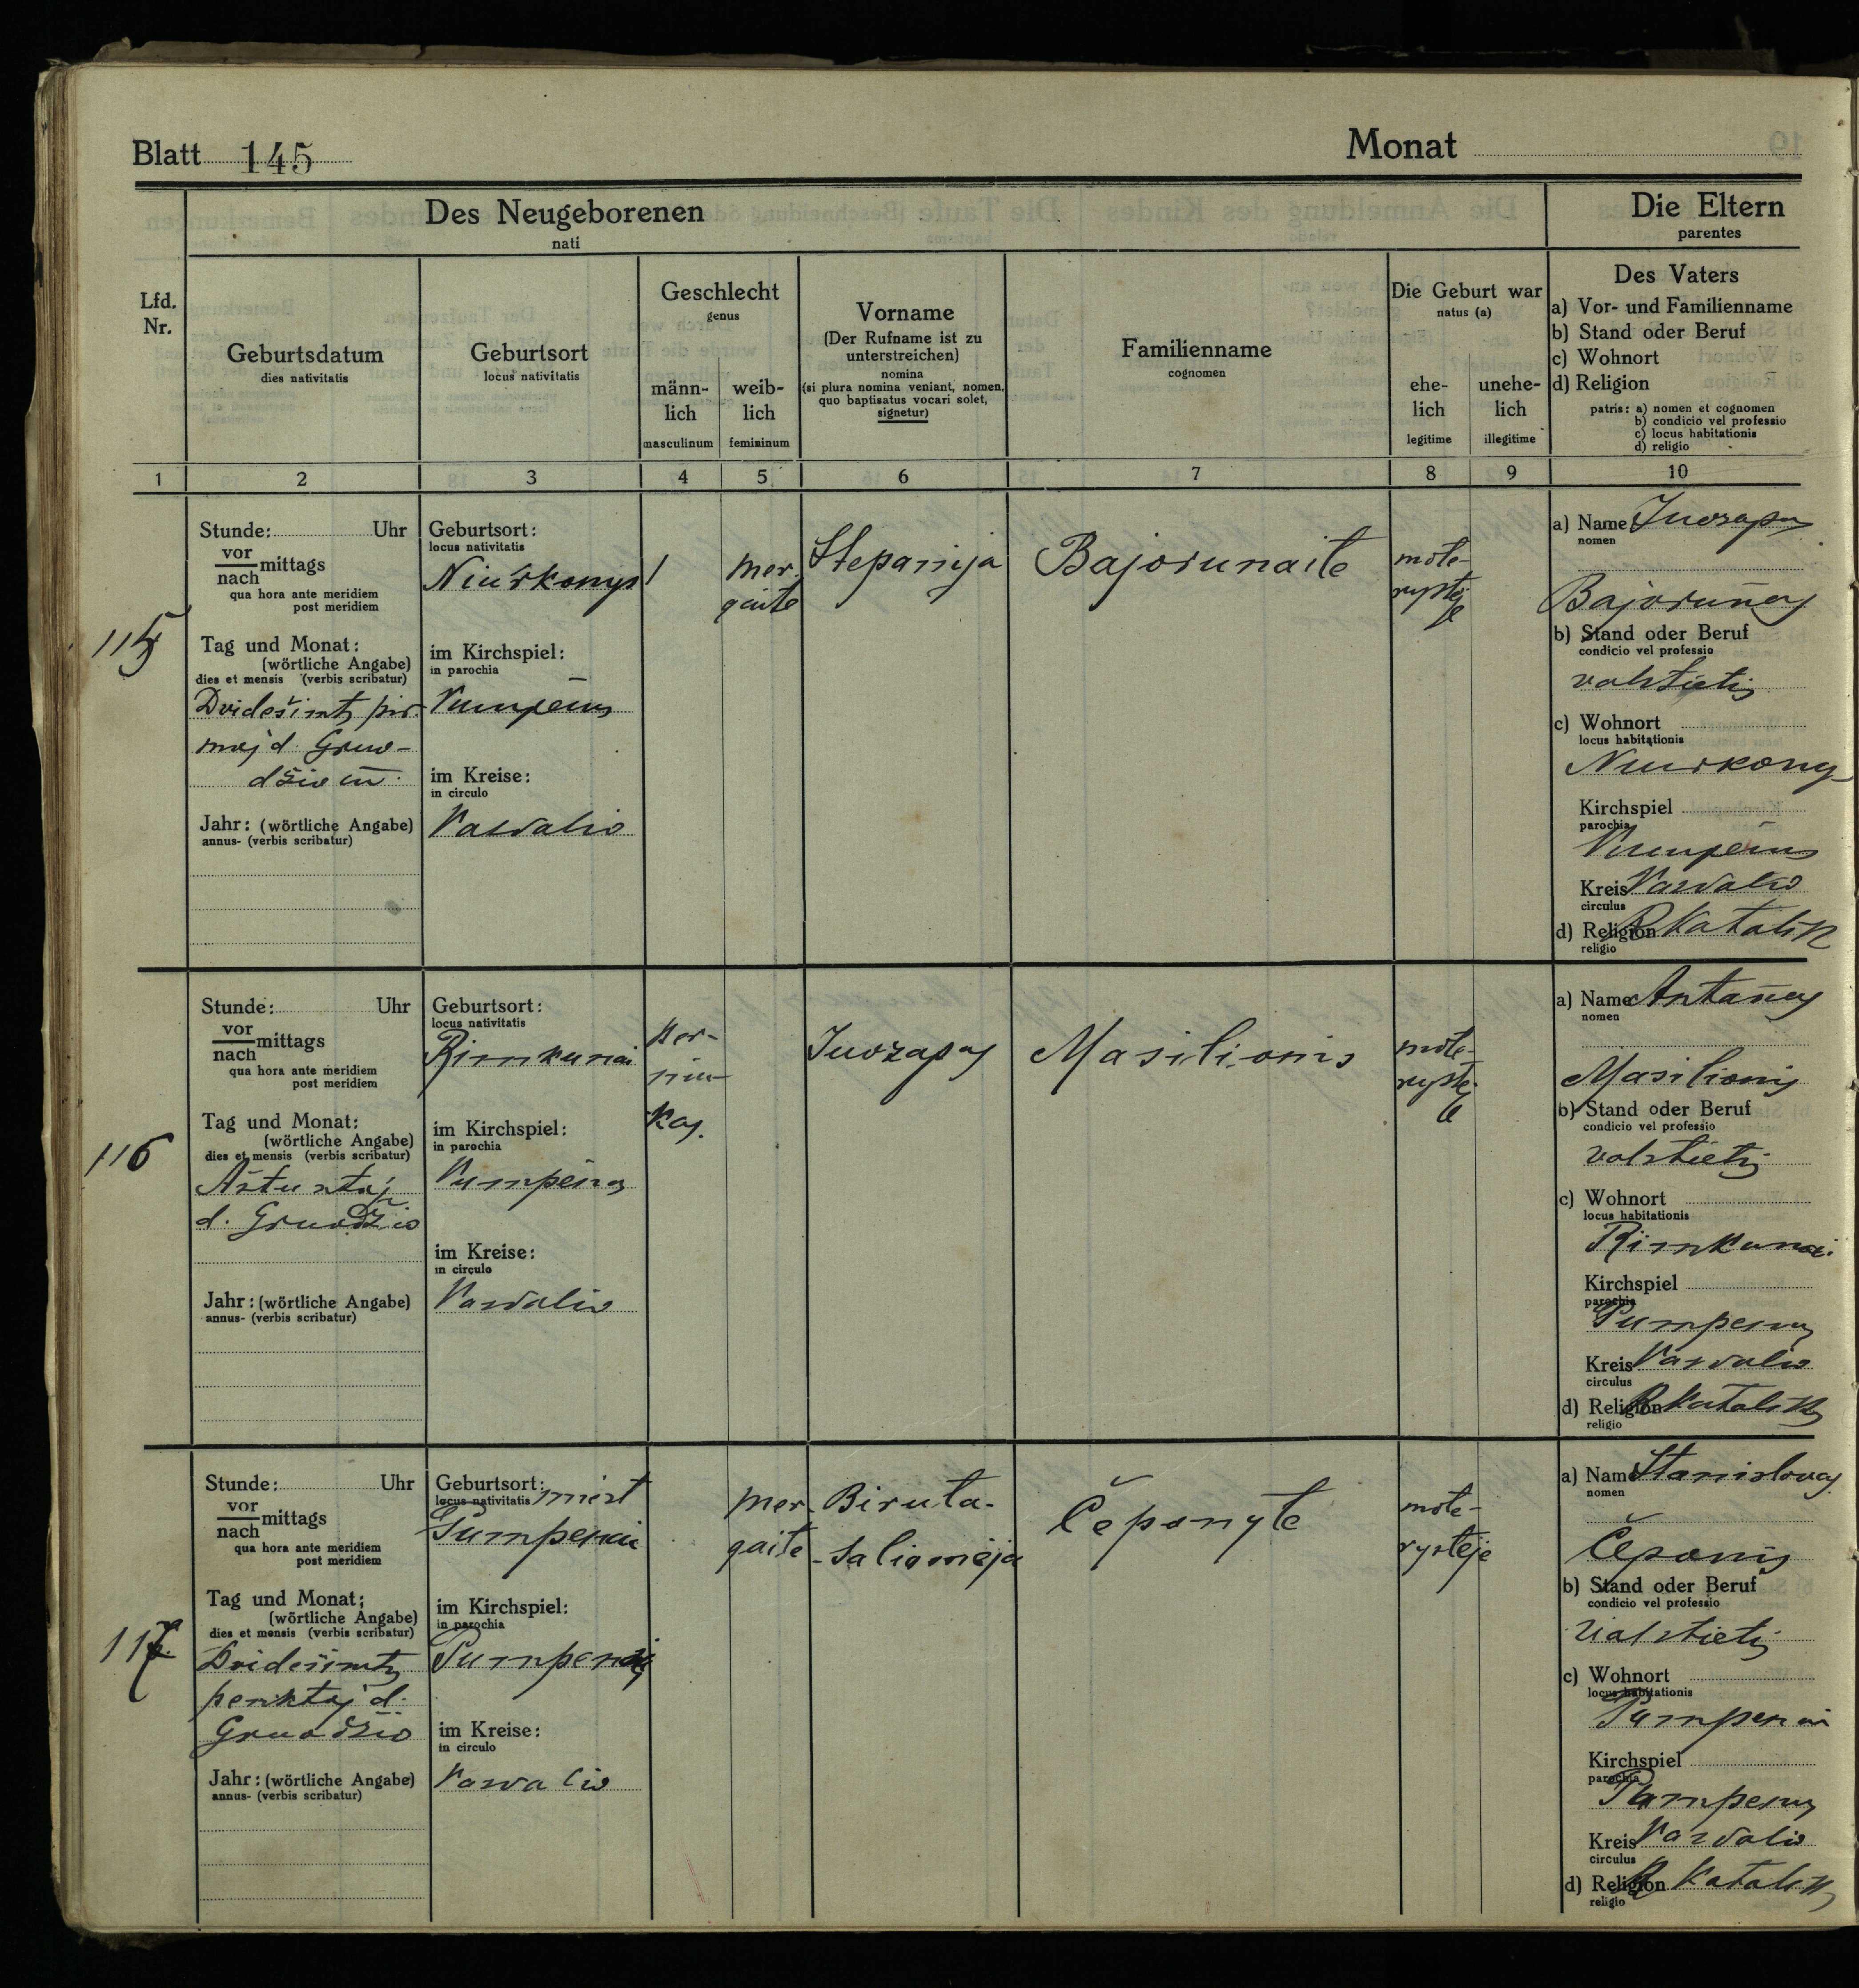 Blatt 145
Monat
Des Neugeborenen
nati
Die Eltern
parentes
Lfd.
Nr.
Geburtsdatum
dies nativitatis
Geburtsort
locus nativitatis
Geschlecht
genus
männ-
lich
masculinum
weib-
lich
femininum
Vorname
(Der Rufname ist zu
unterstreichen)
nomina
(si plura nomina veniant, nomen,
quo baptisatus vocari solet,
signetur)
Familienname
cognomen
Die Geburt war
natus (a)
ehe-
lich
legitime
unehe-
lich
illegitime
Des Vaters
a) Vor- und Familienname
b) Stand oder Beruf
c) Wohnort
d) Religion
patris: a) nomen et cognomen
b) condicio vel professio
c) locus habitationis
d) religio
1 2 3 4 5 6 7 8 9 10
115
Stunde: Uhr
vor
nach mittags
qua hora ante meridiem
post meridiem
Tag und Monat:
(wörtliche Angabe)
dies et mensis (verbis scribatur)
Dvidešimts pir-
maj d. Gruo-
džio m.
Jahr: (wörtliche Angabe)
annus- (verbis scribatur)
Geburtsort:
locus nativitatis
Niurkonys
im Kirchspiel:
in parochia
im Kreise:
in circulo
mer-
gaite
Stepanija
Bajorunaite
mote-
rystė-
je
a) Name Juozapas
nomen
Bajorunas
b) Stand oder Beruf
condicio vel professio
valstietis
c) Wohnort
locus habitationis
Niurkonys
Kirchspiel
parochia
Kreis
circulus
d) Religion R Katalik
religio
116
Stunde: Uhr
vor
nach mittags
qua hora ante meridiem
post meridiem
Tag und Monat:
(wörtliche Angabe)
dies et mensis (verbis scribatur)
Aštuntaj
d. Gruodžio
Jahr: (wörtliche Angabe)
annus- (verbis scribatur)
Geburtsort:
locus nativitatis
Rimkunai
im Kirchspiel:
in parochia
Pumpenų
im Kreise:
in circulo
ber-
niu-
kas.
Juozapas
Masilionis
mote-
rystė-
je
a) Name Antanas
nomen
Masilionis
b) Stand oder Beruf
condicio vel professio
valstietis
c) Wohnort
locus habitationis
Rimkunai
Kirchspiel
parochia
Pumpenų
Kreis
circulus
d) Religion R Katalik
religio
117
Stunde: Uhr
vor
nach mittags
qua hora ante meridiem
post meridiem
Tag und Monat:
(wörtliche Angabe)
dies et mensis (verbis scribatur)
Dvidešimts
penktaj d.
Gruodžio
Jahr: (wörtliche Angabe)
annus- (verbis scribatur)
Geburtsort: miest
locus nativitatis
Pumpenai
im Kirchspiel:
in parochia
Pumpenų
im Kreise:
in circulo
mer-
gaite
Biruta-
-Saliomėja
Čeponytė
mote-
rystėje
a) Name Stanislovas
nomen
Čeponis
b) Stand oder Beruf
condicio vel professio
valstietis
c) Wohnort
locus habitationis
Pumpenai
Kirchspiel
parochia
Pumpenų
Kreis
circulus
d) Religion R Katalik
religio